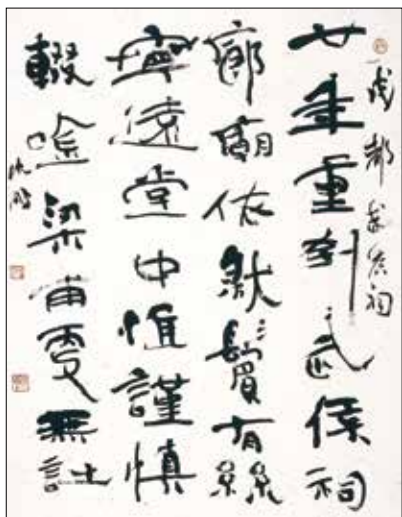 成都武侯祠
廿年重到武侯祠
廊廟依然鬢有絲
寧遠堂中惟謹慎
輟唫梁甫無
沈鵬